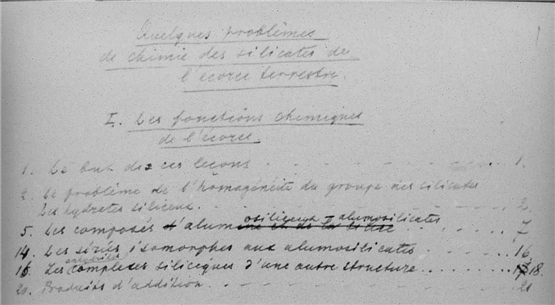 Quelques problèmes
de chimie des silicates de
l'écorce terrestre.
I. Les fonctions chimiques
de l'écorce.
1. Le but de ces leçons . . . . . . 1.
2. Le problème de l'homogénéité du groupe des silicates
Les hydrates siliceux . . . . . . 2
5. Les composés d'alumosiliceux alumosilicates . . . . 7
14. Les séries isomorphes aux alumosilicates . . . . 16
16. Les complexes siliceques d'une autre structure . . . . 18.
20. Produits d'addition . . . . . . 21